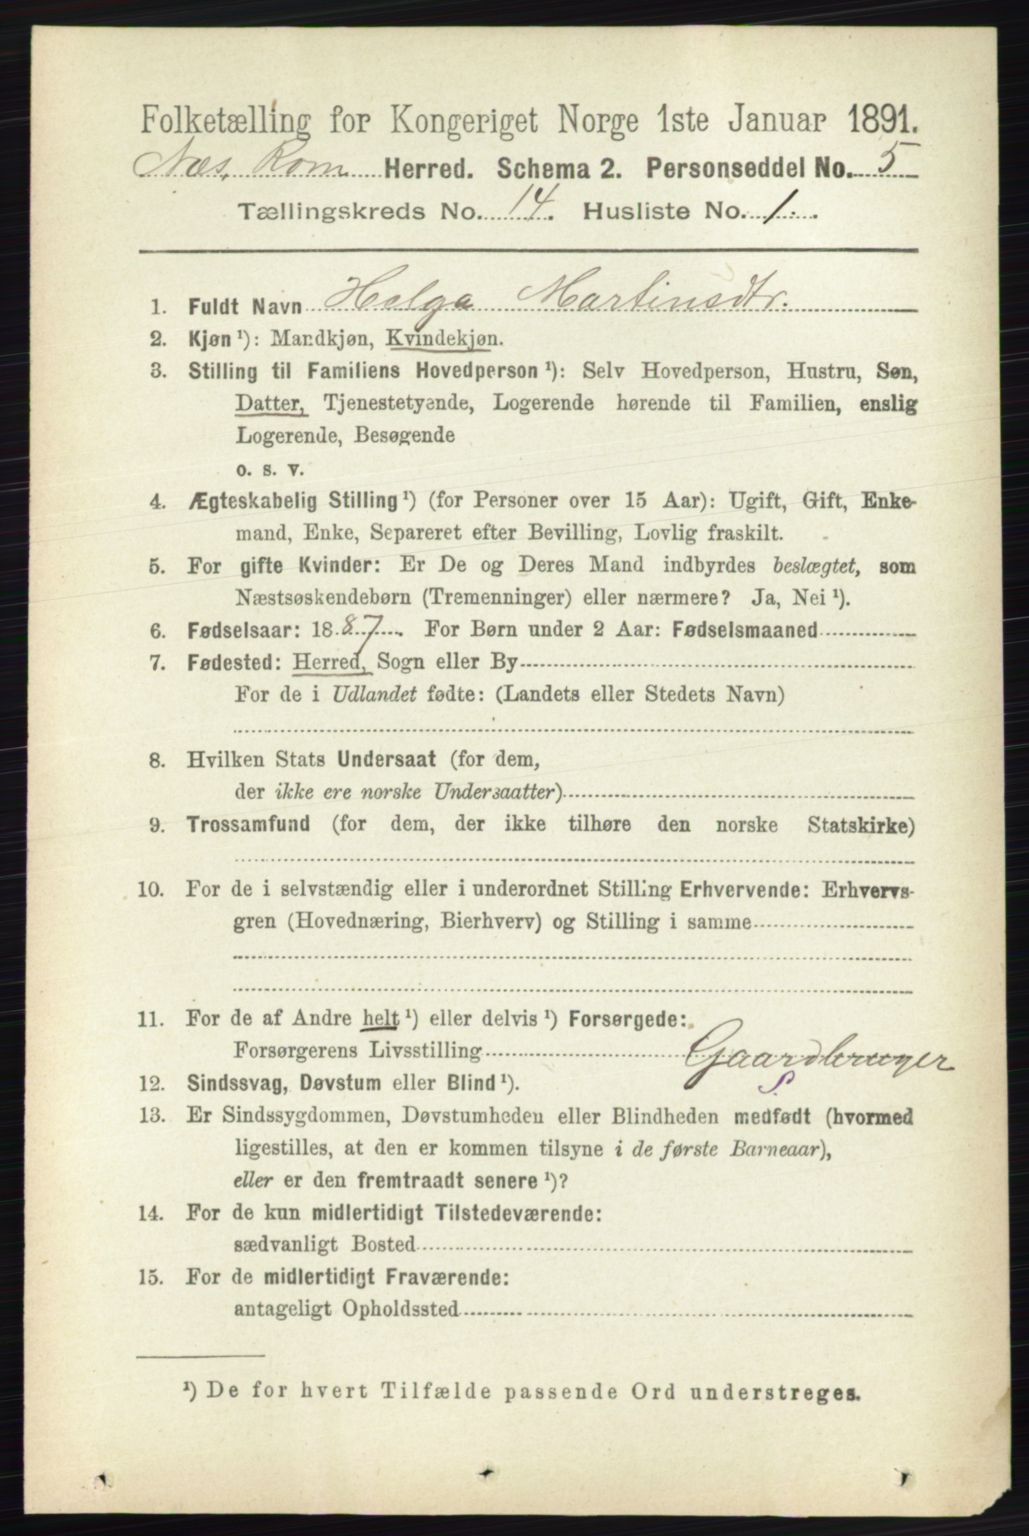 Folketælling for Kongeriget Norge 1ste Januar 1891.
Næs, Rom. Herred. Schema 2. Personseddel No. 5
Tællingskreds No. 14. Husliste No. 1.
1. Fuldt Navn Helga Martinsdtr.
2. Kjøn ¹): Mandkjøn, Kvindekjøn.
3. Stilling til Familiens Hovedperson ¹): Selv Hovedperson, Hustru, Søn,
Datter, Tjenestetyende, Logerende hørende til Familien, enslig
Logerende, Besøgende
o. s. v.
4. Ægteskabelig Stilling ¹) (for Personer over 15 Aar): Ugift, Gift, Enke-
mand, Enke, Separeret efter Bevilling, Lovlig fraskilt.
5. For gifte Kvinder: Er De og Deres Mand indbyrdes beslægtet, som
Næstsøskendebørn (Tremenninger) eller nærmere? Ja, Nei ¹).
6. Fødselsaar: 1887. For Børn under 2 Aar: Fødselsmaaned
7. Fødested: Herred, Sogn eller By
For de i Udlandet fødte: (Landets eller Stedets Navn)
8. Hvilken Stats Undersaat (for dem,
der ikke ere norske Undersaatter)
9. Trossamfund (for dem, der ikke tilhøre den norske Statskirke)
10. For de i selvstændig eller i underordnet Stilling Erhvervende: Erhvervs-
gren (Hovednæring, Bierhverv) og Stilling i samme
11. For de af Andre helt ¹) eller delvis ¹) Forsørgede:
Forsørgerens Livsstilling Gaardbruger
12. Sindssvag, Døvstum eller Blind ¹). S.
13. Er Sindssygdommen, Døvstumheden eller Blindheden medfødt (hvormed
ligestilles, at den er kommen tilsyne i de første Barneaar),
eller er den fremtraadt senere ¹)?
14. For de kun midlertidigt Tilstedeværende:
sædvanligt Bosted
15. For de midlertidigt Fraværende:
antageligt Opholdssted
¹) De for hvert Tilfælde passende Ord understreges.